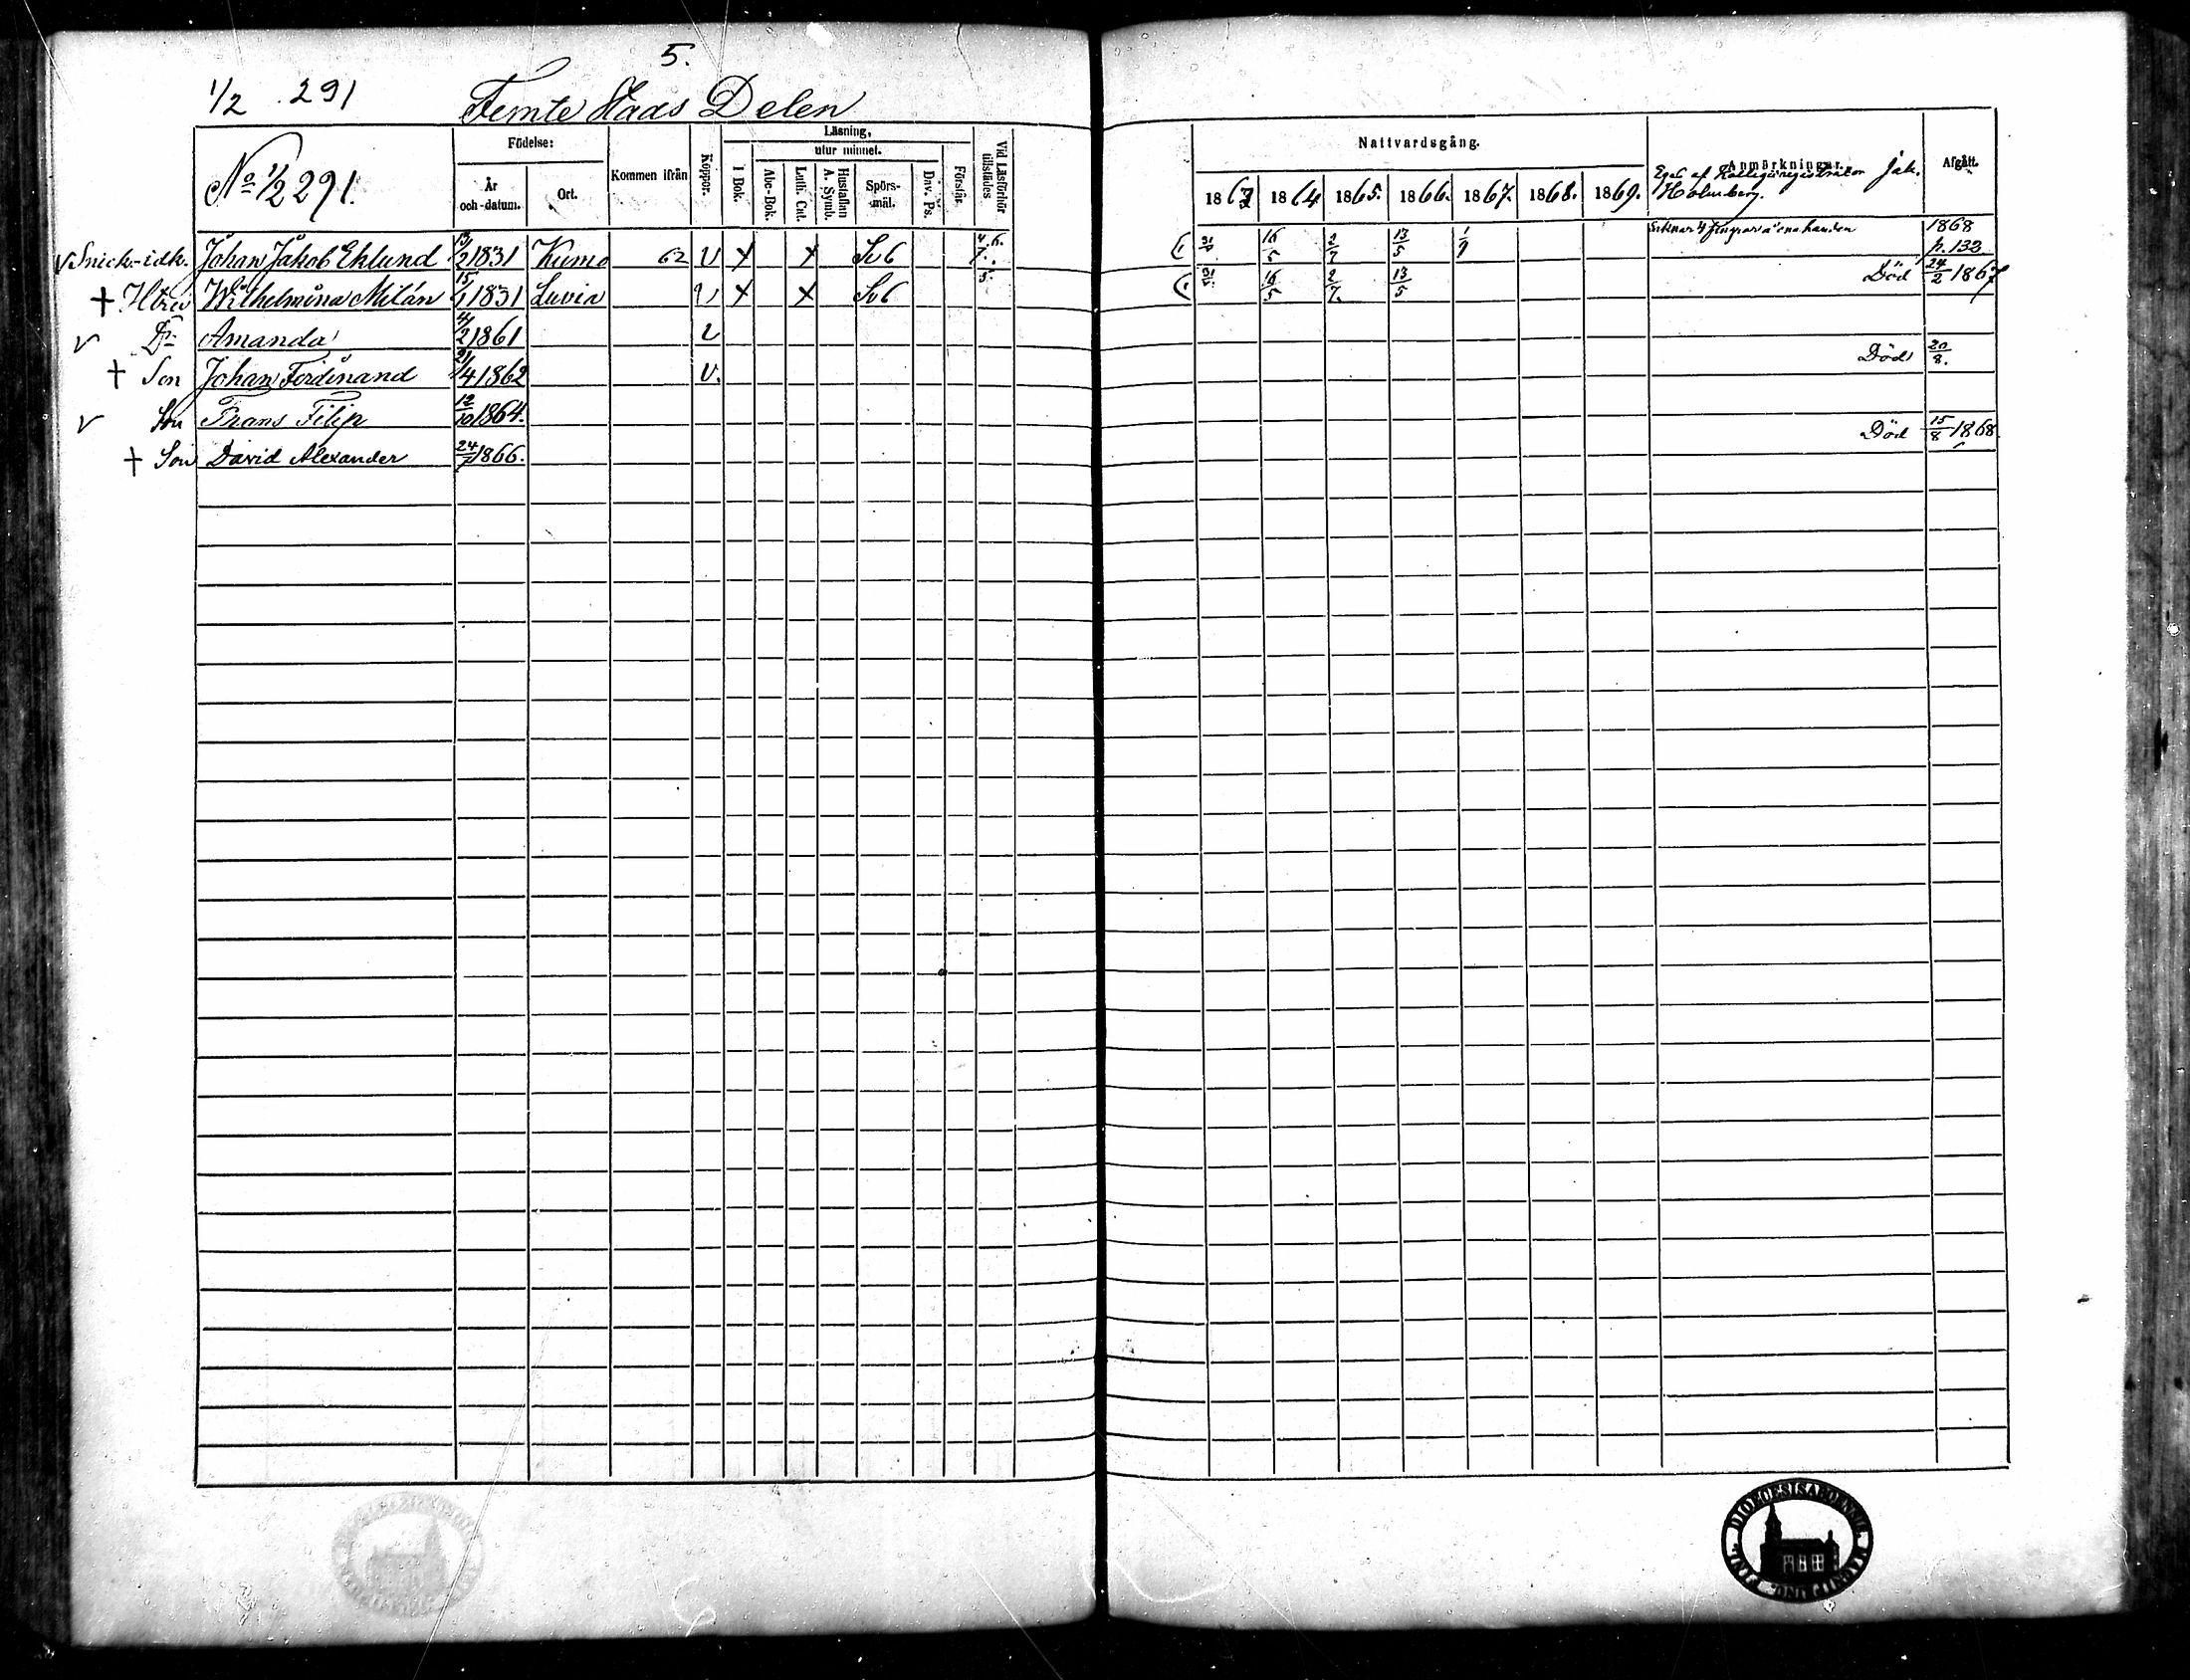 5.
1/2 291 Femte Stads Delen
No 1/2 291.
Födelse:
År och-datum.
Ort.
Kommen ifrån
Koppor.
Läsning,
utur minnet.
I Bok.
Abc-Bok.
Luth. Cat.
Hustaflan A. Symb.
Spörs-mål.
Dav. Ps.
Förstår
Vid Läsförhör tillstädes
Nattvardsgång.
1863 1864 1865. 1866. 1867. 1868. 1869.
Anmärkningar.
Afgått.
Eges af Kollegiiregistrator Jak. Holmberg.
v Snick.-idk. Johan Jakob Eklund 13/2 1831 Kumo 62 v x x Sv6 4. 6. 7. 16/5 2/7 13/5 1/9 Saknar 4 fingrar å ena handen 1868 p. 133
† Hstru Wilhelmina Milán 15/1 1831 Luvia v x x Sv6 5. 16/5 2/7. 13/5 Död 24/2 1867
v Dr Amanda 4/2 1861 v
† Son Johan Ferdinand 21/4 1862 v. Död 20/8.
v Son Frans Filip 12/10 1864.
† Son David Alexander 24/7 1866. Död 15/8 1868